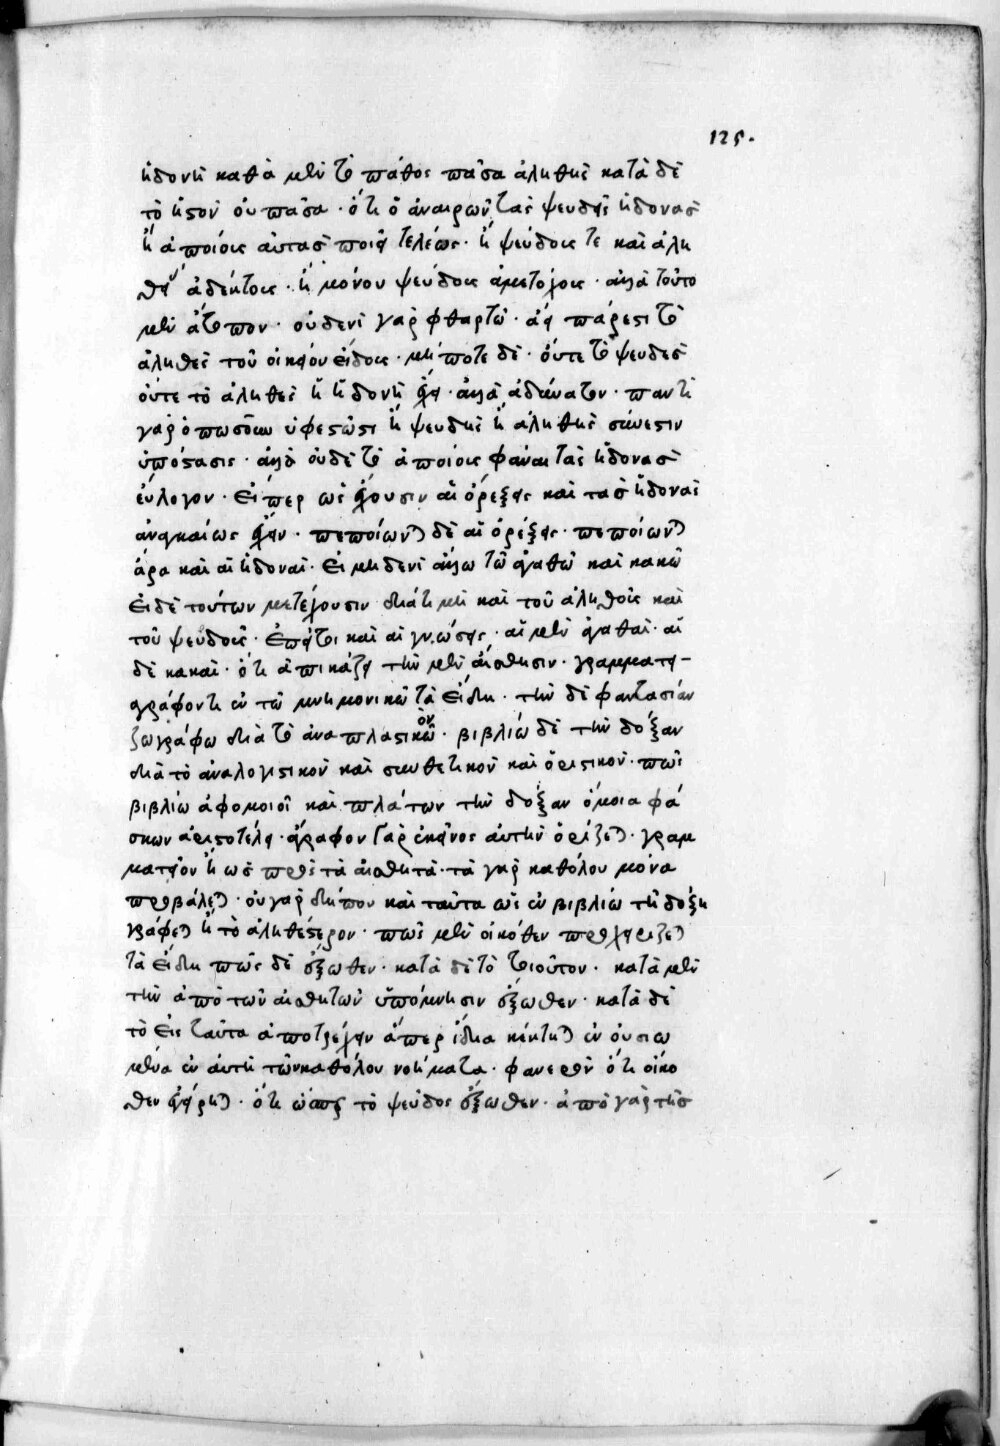 125.
ἡδονὴ καθὰ μὲν τὸ πάθος πᾶσα ἀληθὴς κατὰ δὲ
τὸ ἧστον οὐ πᾶσα · ὅτι ὁ ἀναιρῶν τὰς ψευδεῖς ἡδονὰς
ἢ ἀποίους αὐτὰς ποιεῖ τελέως · ἢ ψεύδους τε καὶ ἀλη
θοῦς ἀδέκτους · ἢ μόνου ψεύδους ἀμετόχους · ἀλλὰ τοῦτο
μὲν ἄτοπον · οὐδενὶ γὰρ φθαρτῷ · ἀεὶ πάρεστι τὸ
ἀληθὲς τοῦ οἰκείου εἴδους · μήποτε δὲ · οὔτε τὸ ψευδὲς
οὔτε τὸ ἀληθὲς ἡ ἡδονὴ ἔχει · ἀλλὰ ἀδύνατον · παντὶ
γὰρ ὁπωσοῦν ὑφεστῶτι ἢ ψευδὴς ἢ ἀληθὴς σύνεστιν
ὑπόστασις · ἀλλὰ οὐδὲ τὸ ἀποίους φάναι τὰς ἡδονὰς
εὔλογον · εἴπερ ὡς ἔχουσιν αἱ ὀρέξεις καὶ τὰς ἡδονὰς
ἀναγκαίως ἔχειν · πεποίωνται δὲ αἱ ὀρέξεις · πεποίωνται
ἄρα καὶ αἱ ἡδοναί · εἰ μηδενὶ ἄλλω τῶ ἀγαθῶ καὶ κακῶ
εἰ δὲ τούτων μετέχουσιν διάτι μὴ καὶ τοῦ ἀληθοῦς καὶ
τοῦ ψεύδους · ἐπεί τοι καὶ αἱ γνώσεις · αἱ μὲν ἀγαθαὶ · αἱ
δὲ κακαί · ὅτι ἀπεικάζει τὴν μὲν αἴσθησιν · γραμματεῖ
γράφοντι ἐν τῶ μνημονικῶ τὰ εἴδη · τὴν δὲ φαντασίαν
ζωγράφω διὰ τὸ ἀναπλαστικὸν · βιβλίω δὲ τὴν δόξαν
διὰ τὸ ἀναλογιστικὸν καὶ συνθετικὸν καὶ ὁριστικόν · πῶς
βιβλίω ἀφομοιοῖ καὶ πλάτων τὴν δόξαν ὅμοια φά
σκων ἀριστοτέλει · ἄγραφον γὰρ ἐκεῖνος αὐτὴν ὁρίζεται · γραμ
ματεῖον ἢ ὡς πρὸς τὰ αἰσθητὰ · τὰ γὰρ καθόλου μόνα
προβάλλεται · οὐ γὰρ δήπου καὶ ταῦτα ὡς ἐν βιβλίω τῆ δόξη
γράφεται ἢ τὸ ἀληθέστερον · πῶς μὲν οἴκοθεν προχειρίζεται
τὰ εἴδη πῶς δὲ ἔξωθεν · κατὰ δὲ τὸ τοιοῦτον · κατὰ μὲν
τὴν ἀπὸ τῶν αἰσθητῶν ὑπόμνησιν ἔξωθεν · κατὰ δὲ
τὸ εἰς ταῦτα ἀποτρέχειν ἅπερ ἴδια κέκτηται ἐν οὐσίω
μένα ἐν αὐτῆ τῶν καθόλου νοήματα · φανερὸν ὅτι οἴκο
θεν ἐγείρεται · ὅτι ὥσπερ τὸ ψεῦδος ἔξωθεν · ἀπὸ γὰρ τῆς